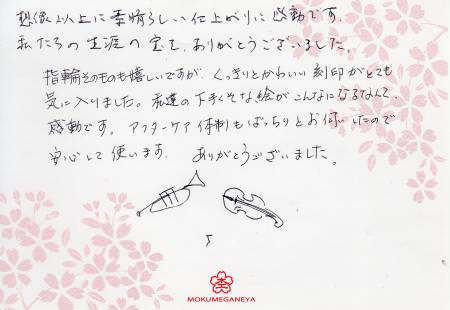 想像以上に素晴らしい仕上がりに感動です。
私たちの生涯の宝を、ありがとうございました。
指輪そのものも嬉しいですが、くっきりとかわいい刻印がとても
気に入りました。私達の下手くそな絵がこんなになるなんて、
感動です。アフターケア体制もばっちりとお伺いしたので
安心して使います。ありがとうございました。
MOKUMEGANEYA